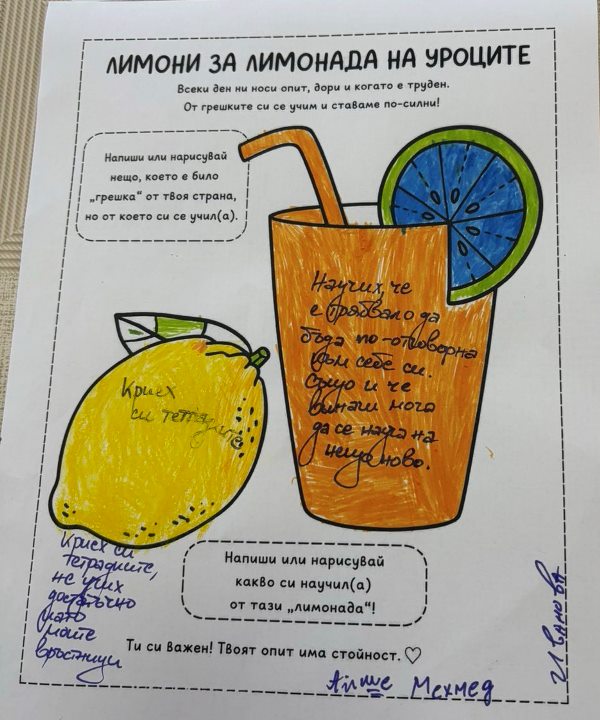 ЛИМОНИ ЗА ЛИМОНАДА НА УРОЦИТЕ
Всеки ден ни носи опит, дори и когато е труден.
От грешките си се учим и ставаме по-силни!
Напиши или нарисувай
нещо, което е било
„грешка“ от твоя страна,
но от което си се учил(а).
Научих, че
е трябвало да
бъда по-отговорна
към себе си.
Също и че
винаги мога
да се науча на
нещо ново.
Криех
си тетрадките
Криех си
тетрадките,
не учих
достатъчно
като
моите
връстници
Напиши или нарисувай
какво си научил(а)
от тази „лимонада“!
Ти си важен! Твоят опит има стойност.
Айше Мехмед